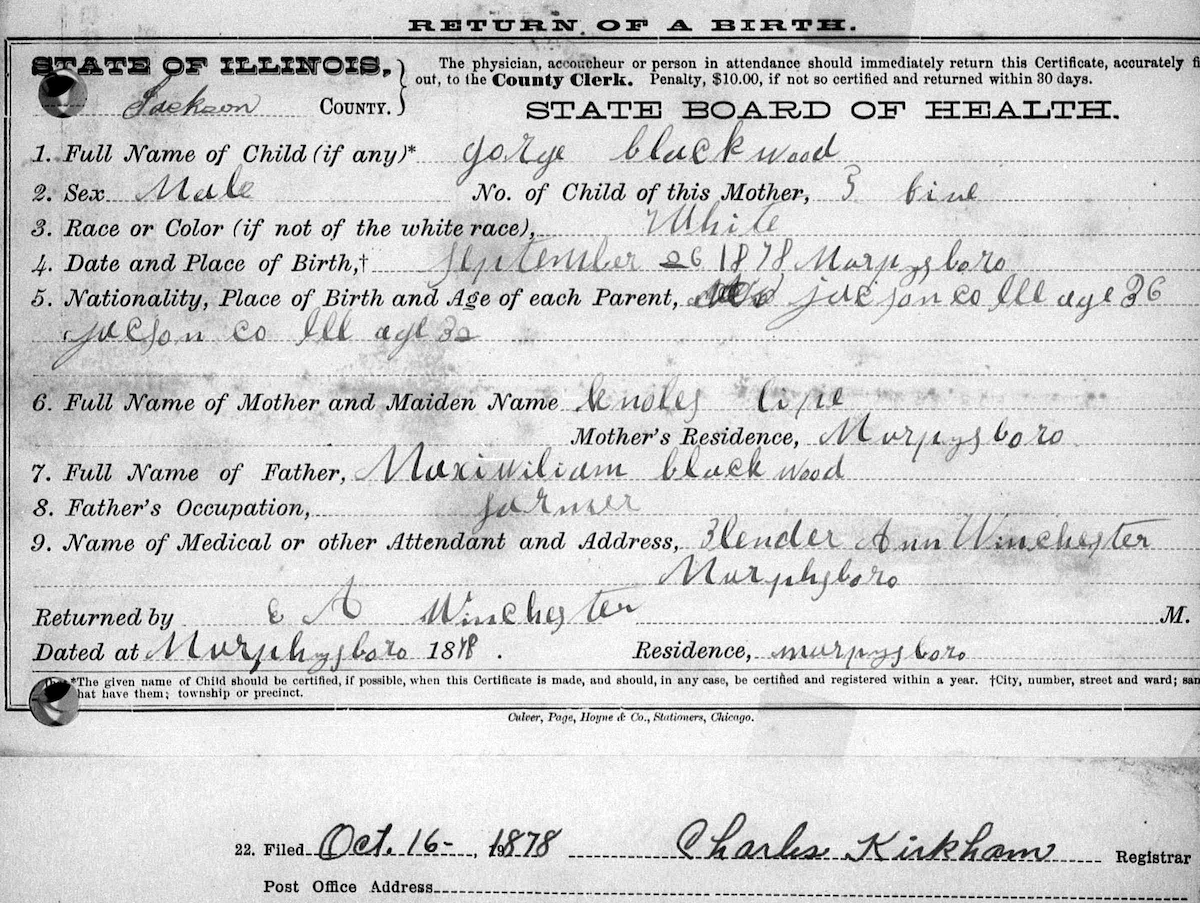 RETURN OF A BIRTH.
STATE OF ILLINOIS,
Jackson COUNTY.
The physician, accoucheur or person in attendance should immediately return this Certificate, accurately fi
out, to the County Clerk. Penalty, $10.00, if not so certified and returned within 30 days.
STATE BOARD OF HEALTH.
1. Full Name of Child (if any)* gorge black wood
2. Sex Male No. of Child of this Mother, 3
3. Race or Color (if not of the white race), White
4. Date and Place of Birth,† September 26 1878 Morpysboro
5. Nationality, Place of Birth and Age of each Parent, jacson co Ill age 36
jacson co Ill age 32
6. Full Name of Mother and Maiden Name
Mother's Residence, Murpysboro
7. Full Name of Father, Maxiwiliam black wood
8. Father's Occupation, farmer
9. Name of Medical or other Attendant and Address, Ann Winchester
Murphysboro
Returned by e A Winchester M.
Dated at Murphysboro 1878. Residence, murpysboro
*The given name of Child should be certified, if possible, when this Certificate is made, and should, in any case, be certified and registered within a year. †City, number, street and ward; sam
hat have them; township or precinct.
Culver, Page, Hoyne & Co., Stationers, Chicago.
22. Filed Oct. 16-, 1878 Charles Kirkham Registrar
Post Office Address